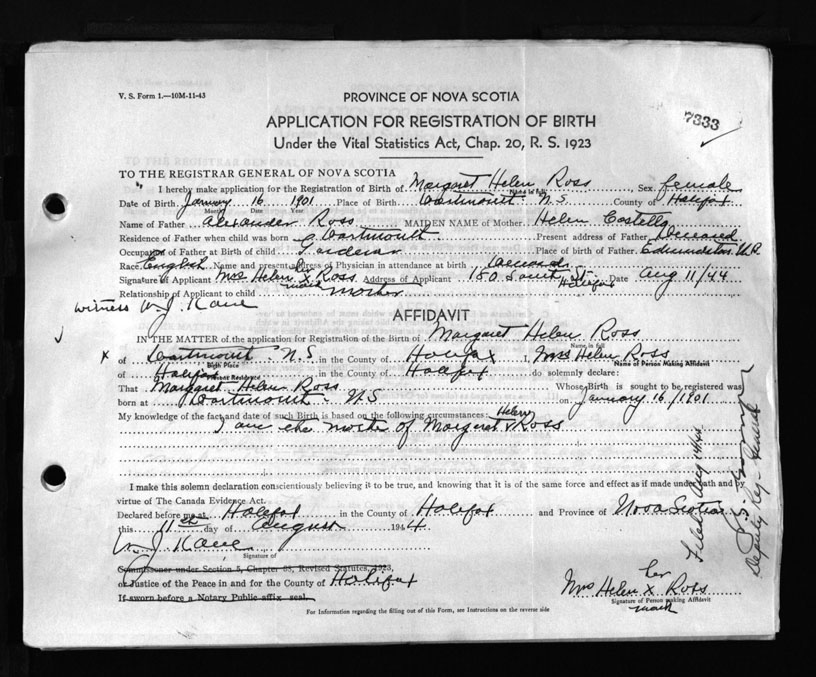 V. S. Form 1.—10M-11-43
PROVINCE OF NOVA SCOTIA
APPLICATION FOR REGISTRATION OF BIRTH
7333
Under the Vital Statistics Act, Chap. 20, R. S. 1923
TO THE REGISTRAR GENERAL OF NOVA SCOTIA
I hereby make application for the Registration of Birth of Margaret Helen Ross Sex female
Name in full
Date of Birth January 16 1901 Place of Birth Dartmouth N.S County of Halifax
Month Date Year
Name of Father Alexander Ross MAIDEN NAME of Mother Helen Costello
Residence of Father when child was born Dartmouth Present address of Father Deceased
Occupation of Father at Birth of child Gardener Place of Birth of Father
Race English Name and present address of Physician in attendance at birth
Signature of Applicant Mrs Helen her x mark Ross Address of Applicant 150 South St. Halifax Date Aug 11/44
Relationship of Applicant to child mother
witness W. J. Kane
AFFIDAVIT
IN THE MATTER of the application for Registration of the Birth of Margaret Helen Ross
Name in full
x of Dartmouth N.S in the County of Halifax I, Mrs Helen Ross
Birth Place Name of Person Making Affidavit
of Halifax in the County of Halifax do solemnly declare:
Present Residence
That Margaret Helen Ross Whose Birth is sought to be registered was
born at Dartmouth N.S on January 16/1901
My knowledge of the fact and date of such Birth is based on the following circumstances:
Helen
I am the mother of Margaret Ross
I make this solemn declaration conscientiously believing it to be true, and knowing that it is of the same force and effect as if made under oath and by
virtue of The Canada Evidence Act.
Declared before me at Halifax of Halifax and Province of Nova Scotia
this 11th day of August 1944
W. J. Kane
Signature of
Commissioner under Section 5, Chapter 38, Revised Statutes, 1923,
or Justice of the Peace in and for the County of Halifax
If sworn before a Notary Public affix seal.
her
Mrs Helen x Ross
Signature of Person making Affidavit
mark
For Information regarding the filling out of this Form, see Instructions on the reverse side
Filed Aug 14/44
Deputy Reg. General